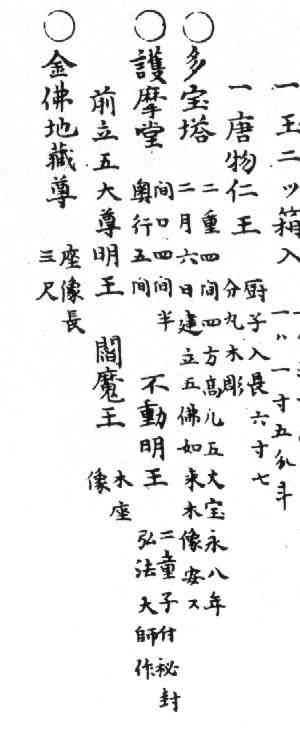 一 王二ツ箱入
一寸五分斗
一 唐物仁王 厨子入長六寸七
分丸木彫
○多宝塔 二重四間四方高凡五丈宝永八年
二月六日建立五佛如来木像安ス
○護摩堂 間口四間半
奥行五間
不動明王 二童子付秘封
弘法大師作
前立五大尊明王 閻魔王 木座
像
○金佛地藏尊 座像長
三尺